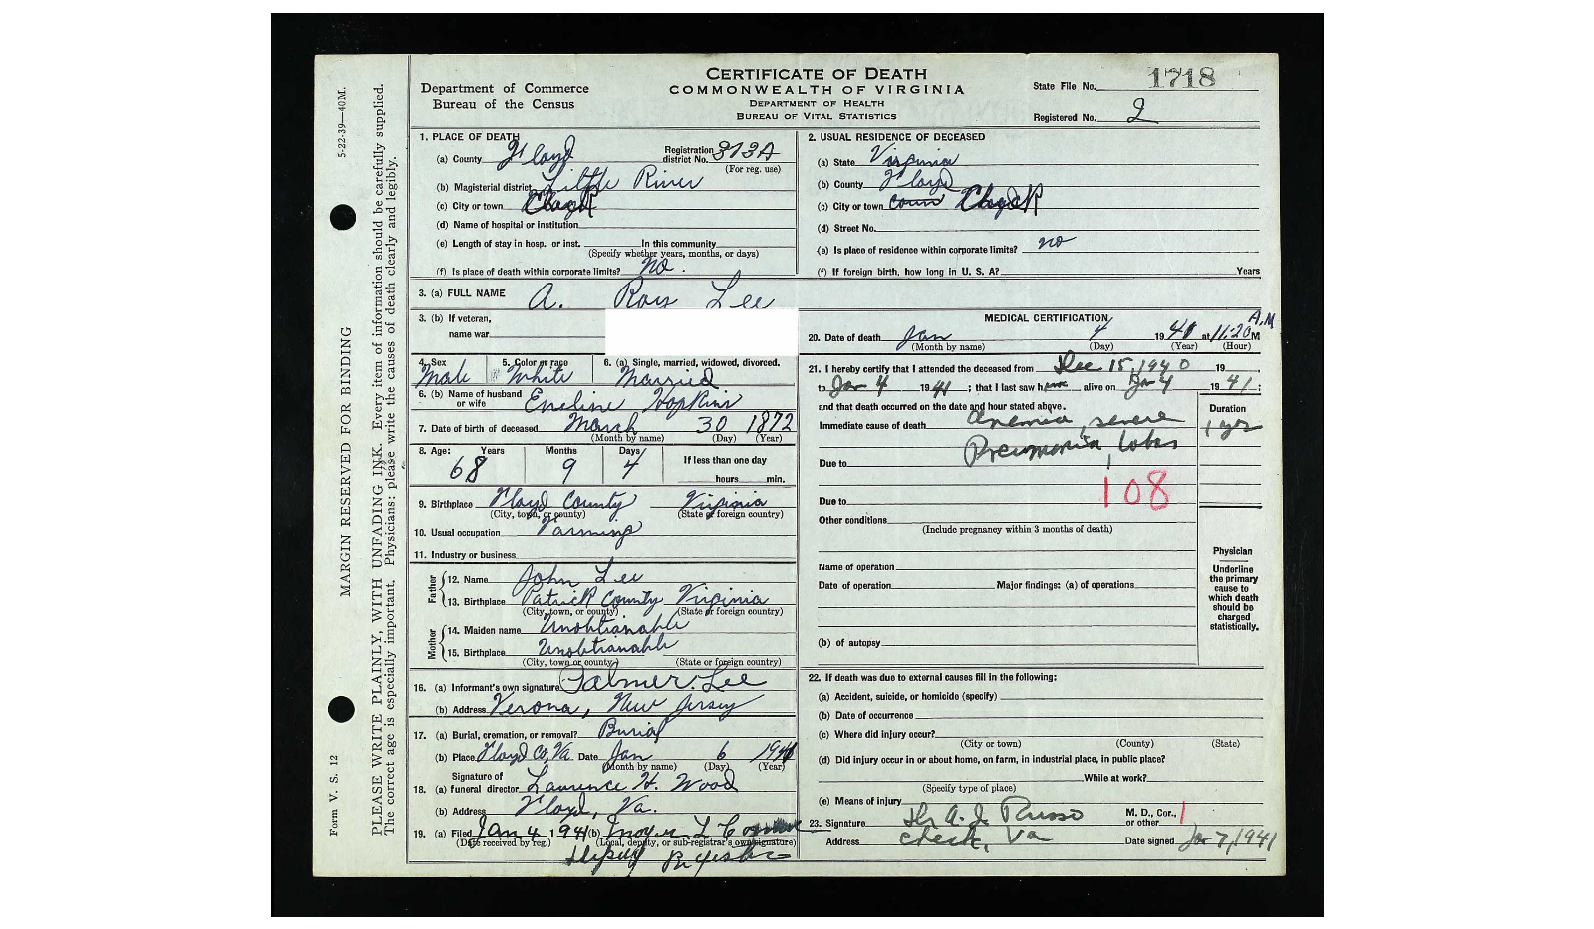 CERTIFICATE OF DEATH
COMMONWEALTH OF VIRGINIA
DEPARTMENT OF HEALTH
BUREAU OF VITAL STATISTICS
Department of Commerce
Bureau of the Census
State File No. 1718
Registered No. 2
5-22-39—40M.
MARGIN RESERVED FOR BINDING
Form V. S. 12
PLEASE WRITE PLAINLY, WITH UNFADING INK. Every item of information should be carefully supplied.
The correct age is especially important. Physicians: please write the causes of death clearly and legibly.
1. PLACE OF DEATH
(a) County Floyd Registration district No. 313A
(For reg. use)
(b) Magisterial district Little River
(c) City or town
(d) Name of hospital or institution
(e) Length of stay in hosp. or inst. In this community
(Specify whether years, months, or days)
(f) Is place of death within corporate limits? No.
2. USUAL RESIDENCE OF DECEASED
(a) State Virginia
(b) County Floyd
(c) City or town
(d) Street No.
(e) Is place of residence within corporate limits? no
(f) If foreign birth, how long in U. S. A? Years
3. (a) FULL NAME A. Ross Lee
3. (b) If veteran,
name war
4. Sex Male
5. Color or race White
6. (a) Single, married, widowed, divorced. Married
6. (b) Name of husband or wife Eveline Hopkins
7. Date of birth of deceased March 30 1872
(Month by name) (Day) (Year)
8. Age: Years 68 Months 9 Days 4 If less than one day
hours min.
9. Birthplace Floyd County Virginia
(City, town, or county) (State of foreign country)
10. Usual occupation Farming
11. Industry or business
Father
12. Name John Lee
13. Birthplace Patrick County Virginia
(City, town, or county) (State or foreign country)
Mother
14. Maiden name Unobtianable
15. Birthplace Unobtianable
(City, town or county) (State or foreign country)
16. (a) Informant's own signature Palmer Lee
(b) Address Verona, New Jersey
17. (a) Burial, cremation, or removal? Burial
(b) Place Floyd Co, Va. Date Jan 6 1941
(Month by name) (Day) (Year)
Signature of
18. (a) funeral director Laurence H. Wood
(b) Address Floyd, Va.
19. (a) Filed Jan 4 1941 (b)
(Date received by reg.) (Local, deputy, or sub-registrar's own signature)
Deputy
MEDICAL CERTIFICATION
20. Date of death Jan 4 1941 at 11:20 A.M
(Month by name) (Day) (Year) (Hour)
21. I hereby certify that I attended the deceased from Dec 15, 1940 19
to Jan 4 1941; that I last saw him alive on Jan 4 1941;
and that death occurred on the date and hour stated above.
Duration
Immediate cause of death Anemia, severe 1 yr
Pneumonia, lobar
Due to
108
Due to
Other conditions
(Include pregnancy within 3 months of death)
Name of operation
Date of operation Major findings: (a) of operations
(b) of autopsy
Physician
Underline
the primary
cause to
which death
should be
charged
statistically.
22. If death was due to external causes fill in the following:
(a) Accident, suicide, or homicide (specify)
(b) Date of occurrence
(c) Where did injury occur?
(City or town) (County) (State)
(d) Did injury occur in or about home, on farm, in industrial place, in public place?
While at work?
(Specify type of place)
(e) Means of injury
23. Signature Dr A. J. Russo M. D., Cor., or other
Address Check, Va Date signed Jan 7, 1941